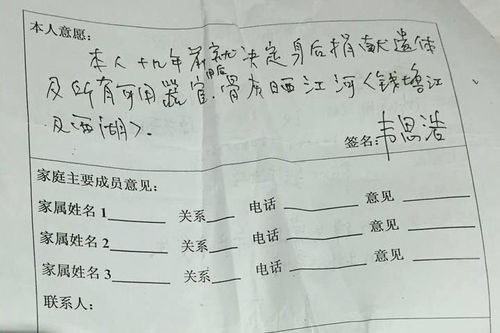 本人意愿：
本人十九年前就决定身后捐献遗体
及所有可用器官用后骨灰晒江河<钱塘江
及西湖>.
签名:韦思浩
家庭主要成员意见:
家属姓名 1 关系 电话 意见
家属姓名 2 关系 电话 意见
家属姓名 3 关系 电话 意见
联系人: